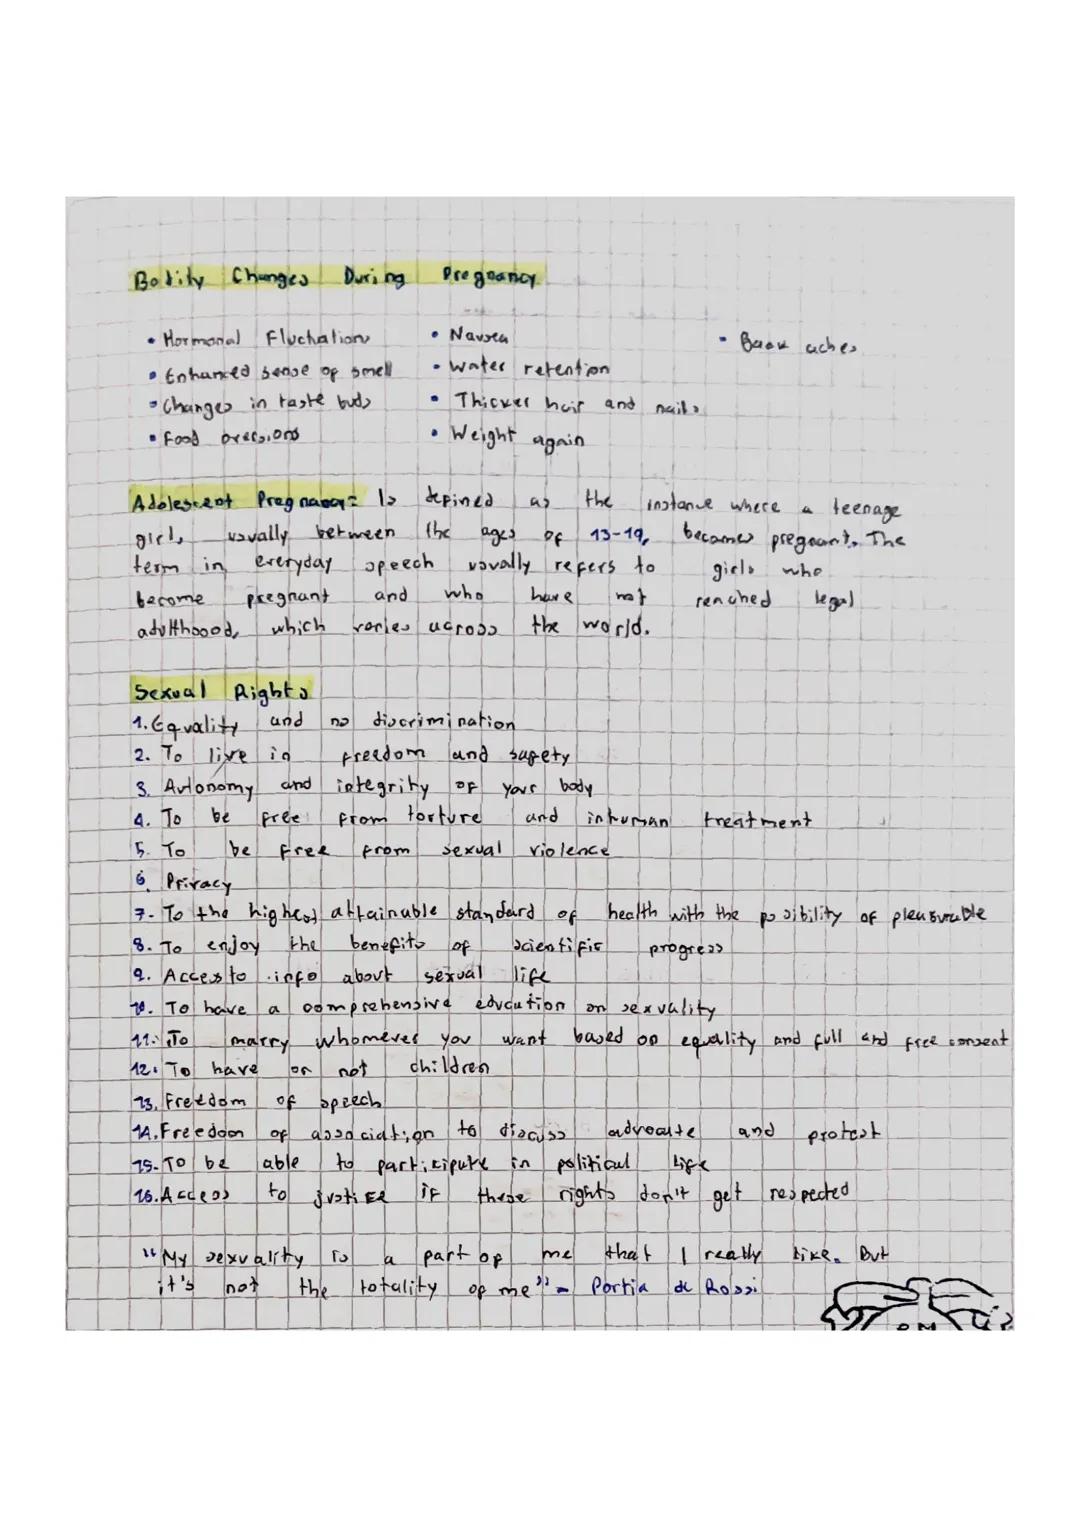 Bodily Changes During Pregnancy
• Hormonal Fluchations • Nausea • Back aches
• Enhanced sense of smell • Water retention
• Changes in taste buds • Thicker hair and nails
• Food aversions • Weight again
Adolescent Pregnancy: Is defined as the instance where a teenage
girl, usually between the ages of 13-19, becomes pregnant. The
term in everyday speech usually refers to girls who
become pregnant and who have not reached legal
adulthoood, which varies across the world.
Sexual Rights
1. Equality and no discrimination
2. To live in freedom and safety
3. Autonomy and integrity of your body
4. To be free from torture and inhuman treatment
5. To be free from sexual violence
6. Privacy
7. To the highest attainable standard of health with the posibility of pleasurable
8. To enjoy the benefits of scientific progress
9. Access to info about sexual life
10. To have a comprehensive education on sexuality
11. To marry whomever you want based on equality and full and free consent
12. To have or not children
13. Freedom of speech
14. Freedom of association to discuss advocate and protest
15. To be able to participate in political life
16. Access to justice if these rights don't get respected
"My sexuality is a part of me that I really like. But
it's not the totality of me" - Portia de Rossi